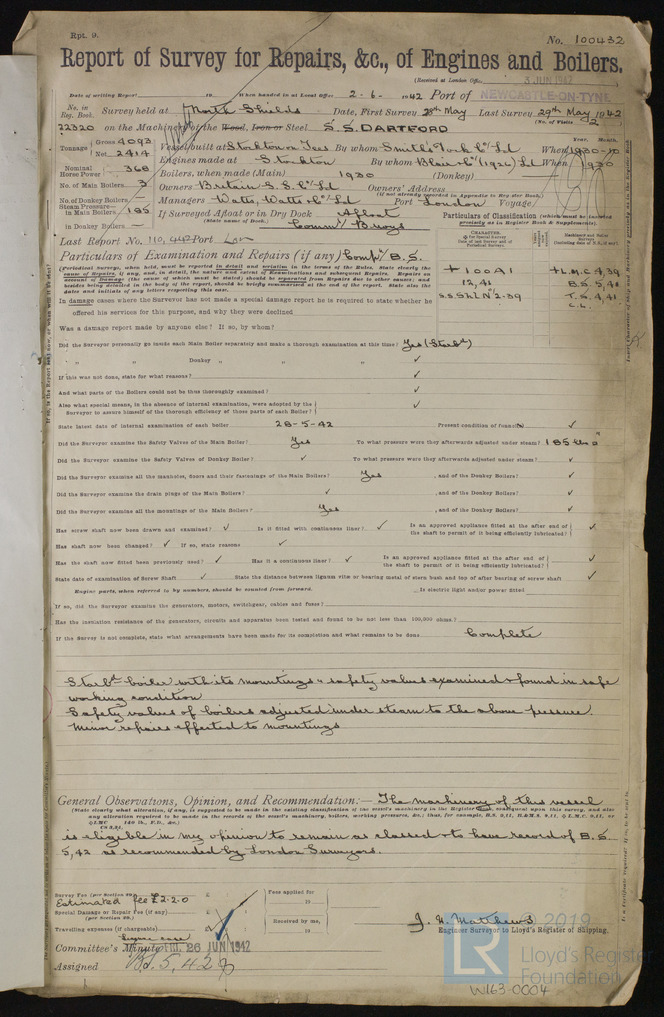 Rpt. 9.
No. 100432
Report of Survey for Repairs, &c., of Engines and Boilers.
(Received at London Office 3 JUN 1942
Date of writing Report 19 When handed in at Local Office 2-6-1942 Port of NEWCASTLE-ON-TYNE
No. in Reg. Book. Survey held at North Shields Date, First Survey 28th May Last Survey 29th May 1942
(No. of Visits 2
22320 on the Machinery of the Wood, Iron or Steel S.S. DARTFORD
Tonnage Gross 4093 Net 2414 Vessel built at Stockton on Tees By whom Smith's Dock Co Ld When 1930-10
Year. Month.
Engines made at Stockton By whom Blair Co (1926) Ld When 1930
Nominal Horse Power 368 Boilers, when made (Main) 1930 (Donkey)
No. of Main Boilers 3 Owners Britain S.S. Co Ld Owners' Address
(if not already recorded in Appendix to Reg. Book.)
No. of Donkey Boilers Managers Watts, Watts & Co Ld Port London Voyage
Steam Pressure in Main Boilers 185 If Surveyed Afloat or in Dry Dock Afloat
(State name of Dock.) Comm'l Buoys
in Donkey Boilers
Last Report No. 110,442 Port Lon
Particulars of Classification (which must be inserted precisely as in Register Book & Supplements).
Particulars of Examination and Repairs (if any) Comp. B.S.
+100A1 +L.M.C 4,39
12,41 B.S. 5,41
S.S. Shl No 2-39 T.S. 4,41
C.L.
In damage cases where the Surveyor has not made a special damage report he is required to state whether he
offered his services for this purpose, and why they were declined
Was a damage report made by anyone else? If so, by whom?
Did the Surveyor personally go inside each Main Boiler separately and make a thorough examination at this time? Yes (Starbd)
" " Donkey " " " ✓
If this was not done, state for what reasons? ✓
And what parts of the Boilers could not be thus thoroughly examined? ✓
Also what special means, in the absence of internal examination, were adopted by the Surveyor to assure himself of the thorough efficiency of those parts of each Boiler? ✓
State latest date of internal examination of each boiler 28-5-42 Present condition of funnel(s) ✓
Did the Surveyor examine the Safety Valves of the Main Boiler? Yes To what pressure were they afterwards adjusted under steam? 185 lbs
Did the Surveyor examine the Safety Valves of Donkey Boiler? ✓ To what pressure were they afterwards adjusted under steam? ✓
Did the Surveyor examine all the manholes, doors and their fastenings of the Main Boilers? Yes , and of the Donkey Boilers? ✓
Did the Surveyor examine the drain plugs of the Main Boilers? ✓ , and of the Donkey Boilers? ✓
Did the Surveyor examine all the mountings of the Main Boilers? Yes , and of the Donkey Boilers? ✓
Has screw shaft now been drawn and examined? ✓ Is it fitted with continuous liner? ✓ Is an approved appliance fitted at the after end of the shaft to permit of it being efficiently lubricated? ✓
Has shaft now been changed? ✓ If so, state reasons ✓
Has the shaft now fitted been previously used? ✓ Has it a continuous liner? ✓ Is an approved appliance fitted at the after end of the shaft to permit of it being efficiently lubricated? ✓
State date of examination of Screw Shaft ✓ State the distance between lignum vitæ or bearing metal of stern bush and top of after bearing of screw shaft ✓
Engine parts, when referred to by numbers, should be counted from forward. Is electric light and/or power fitted
If so, did the Surveyor examine the generators, motors, switchgear, cables and fuses?
Has the insulation resistance of the generators, circuits and apparatus been tested and found to be not less than 100,000 ohms?
If the Survey is not complete, state what arrangements have been made for its completion and what remains to be done Complete
Starbd boiler with its mountings & safety valves examined & found in safe
working condition
Safety valves of boilers adjusted under steam to the above pressure.
Minor repairs effected to mountings
General Observations, Opinion, and Recommendation:— The machinery of this vessel
is eligible in my opinion to remain as classed & to have record of B.S.
5,42 as recommended by London Surveyors.
Survey Fee (per Section 29)
Estimated fee £2.2.0
Fees applied for
19
Special Damage or Repair Fee (if any)
(per Section 29)
Travelling expenses (if chargeable)
Received by me,
19
J. H. Matthews
Engineer Surveyor to Lloyd's Register of Shipping.
Committee's Minute FRI. 26 JUN 1942
Assigned BS. 5,42
© 2019
LR
Lloyd's Register
Foundation
W163-0004